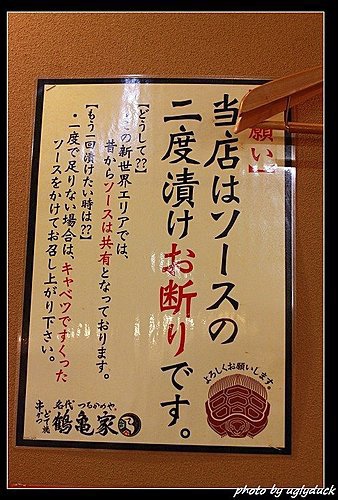 願い】
当店はソースの
二度漬けお断りです。
【どうして??】
・この新世界エリアでは、
昔からソースは共有となっております。
【もう一回漬けたい時は??】
・一度で足りない場合は、キャベツですくった
ソースをかけてお召し上がり下さい。
よろしくお願いします。
串かつ
どて焼
名代
つるかめや
鶴亀家
photo by uglyduck